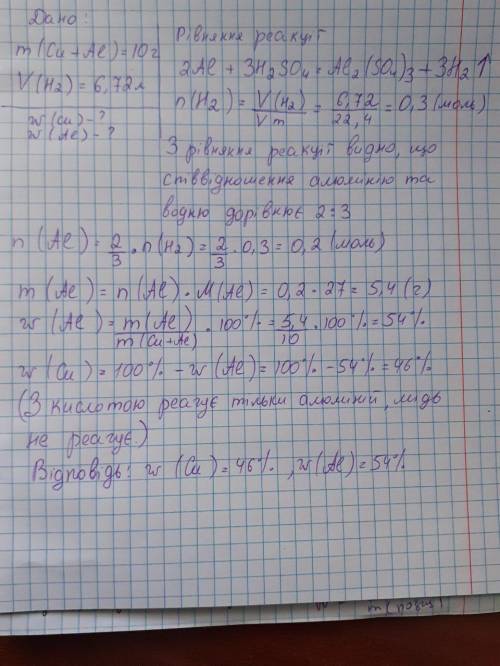 Дано:
m(Cu+Al)=10г
V(H₂)=6,72л
w(Cu)-?
w(Al)-?
Рівняння реакції
2Al + 3H₂SO₄ = Al₂(SO₄)₃ + 3H₂↑
n(H₂) = V(H₂)/Vm = 6,72/22,4 = 0,3 (моль)
З рівняння реакції видно, що
співвідношення алюмінію та
водню дорівнює 2:3
n (Al) = 2/3 · n(H₂) = 2/3 · 0,3 = 0,2 (моль)
m (Al) = n (Al) · M(Al) = 0,2 · 27 = 5,4 (г)
w (Al) = m(Al)/m(Cu+Al) · 100% = 5,4/10 · 100% = 54%
w (Cu) = 100% - w(Al) = 100% - 54% = 46%
(З кислотою реагує тільки алюміній, мідь
не реагує.)
Відповідь: w (Cu) = 46% , w(Al) = 54%